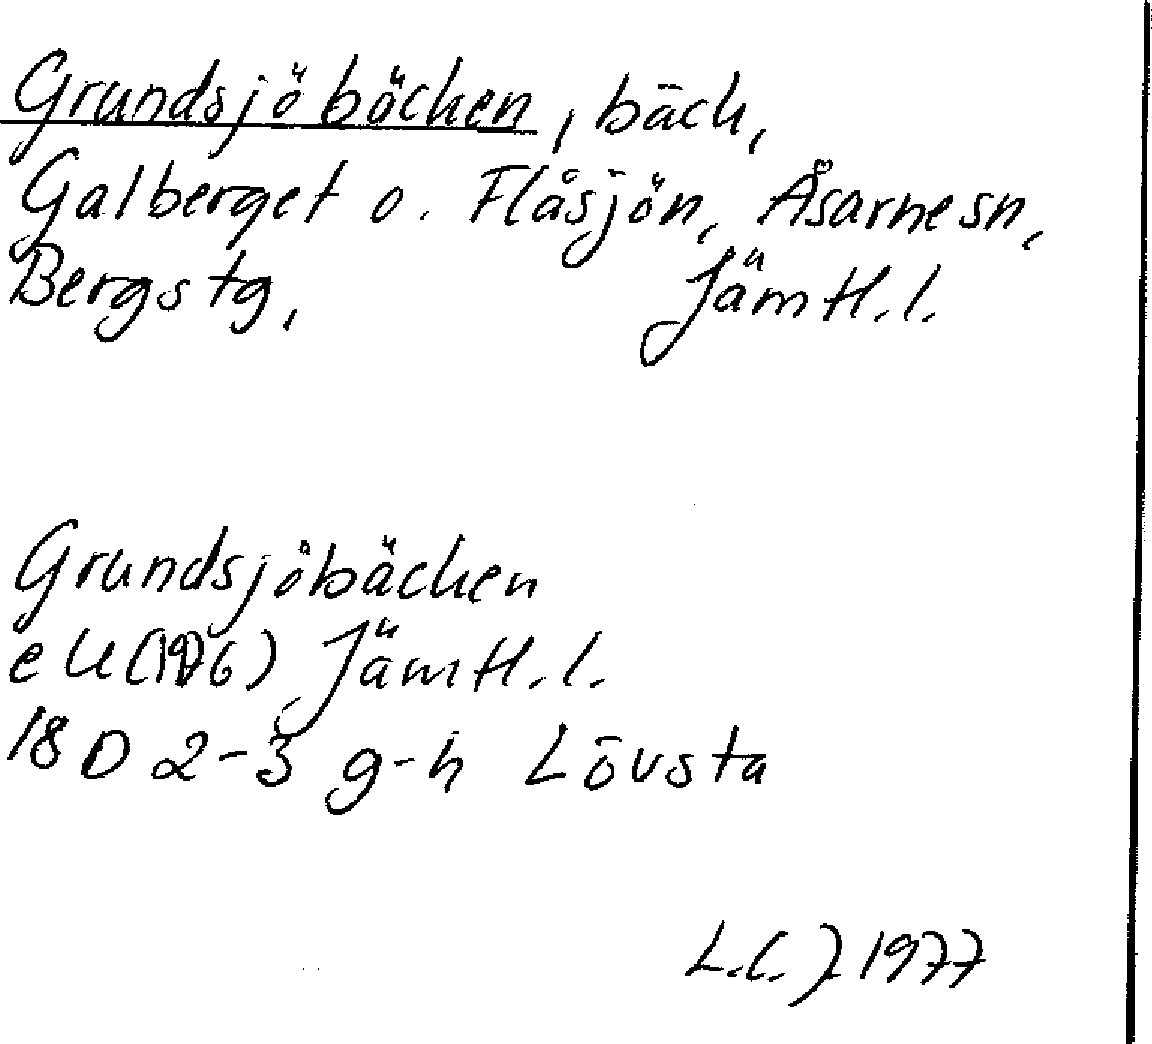 Grundsjöbäcken, bäck,
Galberget o. Flåsjön, Åsarne sn,
Bergs tg, Jämtl. l.
Grundsjöbäcken
e U (1976) Jämtl. l.
18 D 2-3 g-h Lövsta
1977